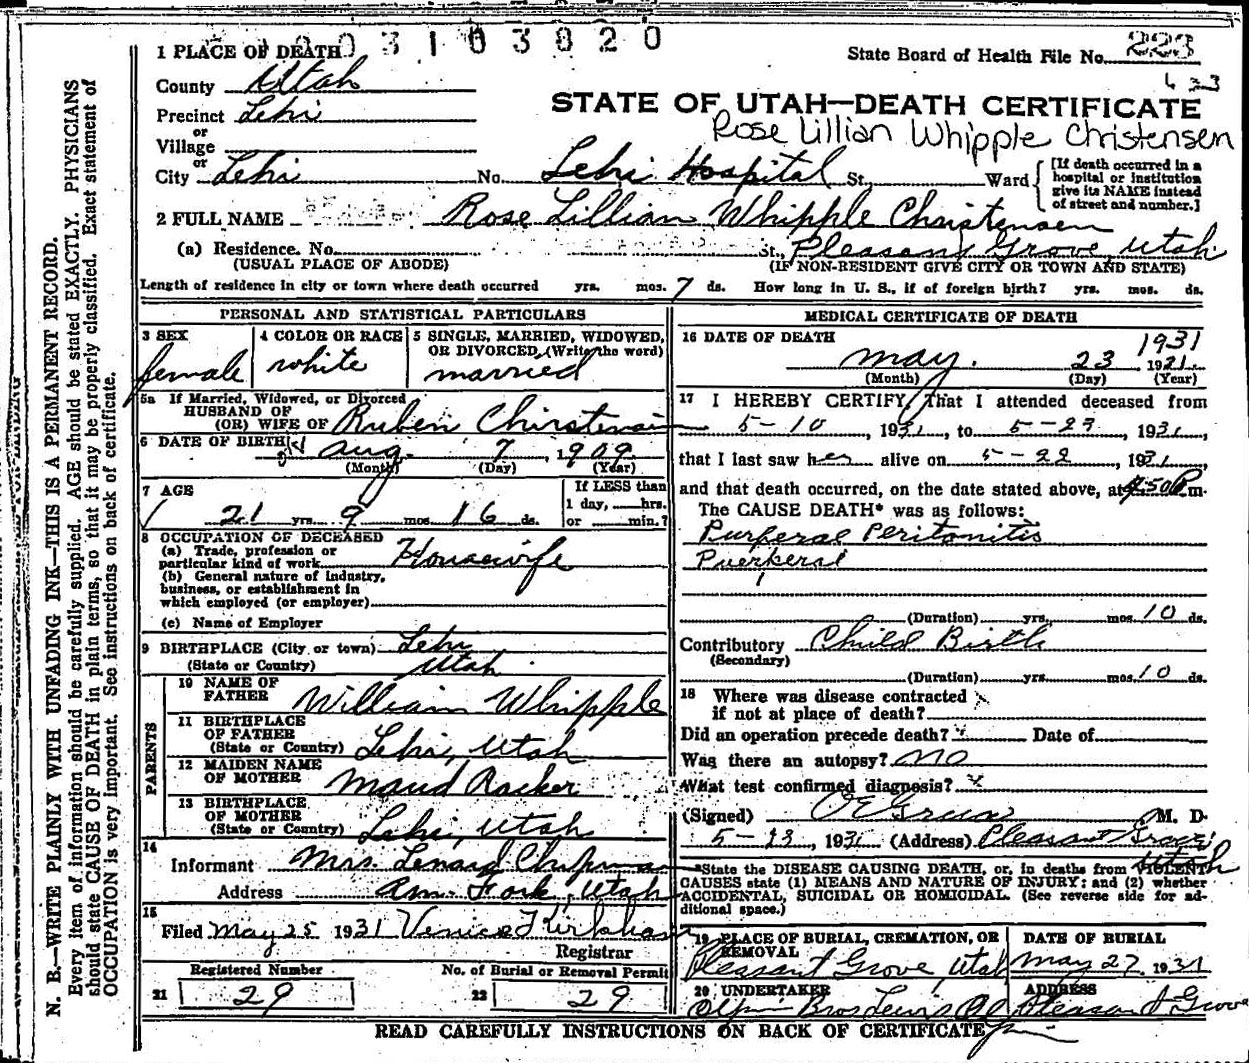 3 1 0 3 8 2 0
1 PLACE OF DEATH
State Board of Health File No. 223
433
County Utah
STATE OF UTAH—DEATH CERTIFICATE
Precinct Lehi
Rose Lillian Whipple Christensen
or
Village
or
City Lehi No. Lehi Hospital St. Ward
[If death occurred in a
hospital or institution
give its NAME instead
of street and number.]
2 FULL NAME Rose Lillian Whipple Christensen
(a) Residence. No. St., Pleasant Grove, Utah
(USUAL PLACE OF ABODE) (IF NON-RESIDENT GIVE CITY OR TOWN AND STATE)
Length of residence in city or town where death occurred yrs. mos. 7 ds. How long in U. S., if of foreign birth? yrs. mos. ds.
PERSONAL AND STATISTICAL PARTICULARS
3 SEX
female
4 COLOR OR RACE
white
5 SINGLE, MARRIED, WIDOWED,
OR DIVORCED, (Write the word)
married
5a If Married, Widowed, or Divorced
HUSBAND OF
(OR) WIFE OF Ruben Chirstensen
6 DATE OF BIRTH Aug. 7, 1909
(Month) (Day) (Year)
7 AGE
21 yrs. 9 mos. 16 ds.
If LESS than
1 day, hrs.
or min.?
8 OCCUPATION OF DECEASED
(a) Trade, profession or
particular kind of work Housewife
(b) General nature of industry,
business, or establishment in
which employed (or employer)
(c) Name of Employer
9 BIRTHPLACE (City or town) Lehi
(State or Country) Utah
PARENTS
10 NAME OF
FATHER William Whipple
11 BIRTHPLACE
OF FATHER
(State or Country) Lehi, Utah
12 MAIDEN NAME
OF MOTHER Maud Racker
13 BIRTHPLACE
OF MOTHER
(State or Country) Lehi, Utah
14
Informant Mrs. Lenard Chipman
Address Am. Fork, Utah
15
Filed May 25 1931 Venice Kirkham
Registrar
Registered Number No. of Burial or Removal Permit
21 29 22 29
MEDICAL CERTIFICATE OF DEATH
16 DATE OF DEATH 1931
May. 23 1931
(Month) (Day) (Year)
17 I HEREBY CERTIFY, That I attended deceased from
5-10, 1931, to 5-23, 1931,
that I last saw her alive on 5-22, 1931,
and that death occurred, on the date stated above, at 4:50 P.m.
The CAUSE DEATH* was as follows:
Purperal Peritonitis
Puerperal
(Duration) yrs. mos. 10 ds.
Contributory Child Birth
(Secondary)
(Duration) yrs. mos. 10 ds.
18 Where was disease contracted
if not at place of death?
Did an operation precede death? Date of
Was there an autopsy? No
What test confirmed diagnosis?
(Signed) O E Grua M. D.
5-23, 1931 (Address) Pleasant Grove,
Utah
*State the DISEASE CAUSING DEATH, or, in deaths from VIOLENT
CAUSES state (1) MEANS AND NATURE OF INJURY; and (2) whether
ACCIDENTAL, SUICIDAL OR HOMICIDAL. (See reverse side for ad-
ditional space.)
19 PLACE OF BURIAL, CREMATION, OR
REMOVAL
Pleasant Grove, Utah
DATE OF BURIAL
May 27, 1931
20 UNDERTAKER ADDRESS
Olpin Bros Pleasant Grove
READ CAREFULLY INSTRUCTIONS ON BACK OF CERTIFICATE
N. B.—WRITE PLAINLY WITH UNFADING INK—THIS IS A PERMANENT RECORD.
Every item of information should be carefully supplied. AGE should be stated EXACTLY. PHYSICIANS
should state CAUSE OF DEATH in plain terms, so that it may be properly classified. Exact statement of
OCCUPATION is very important. See instructions on back of certificate.